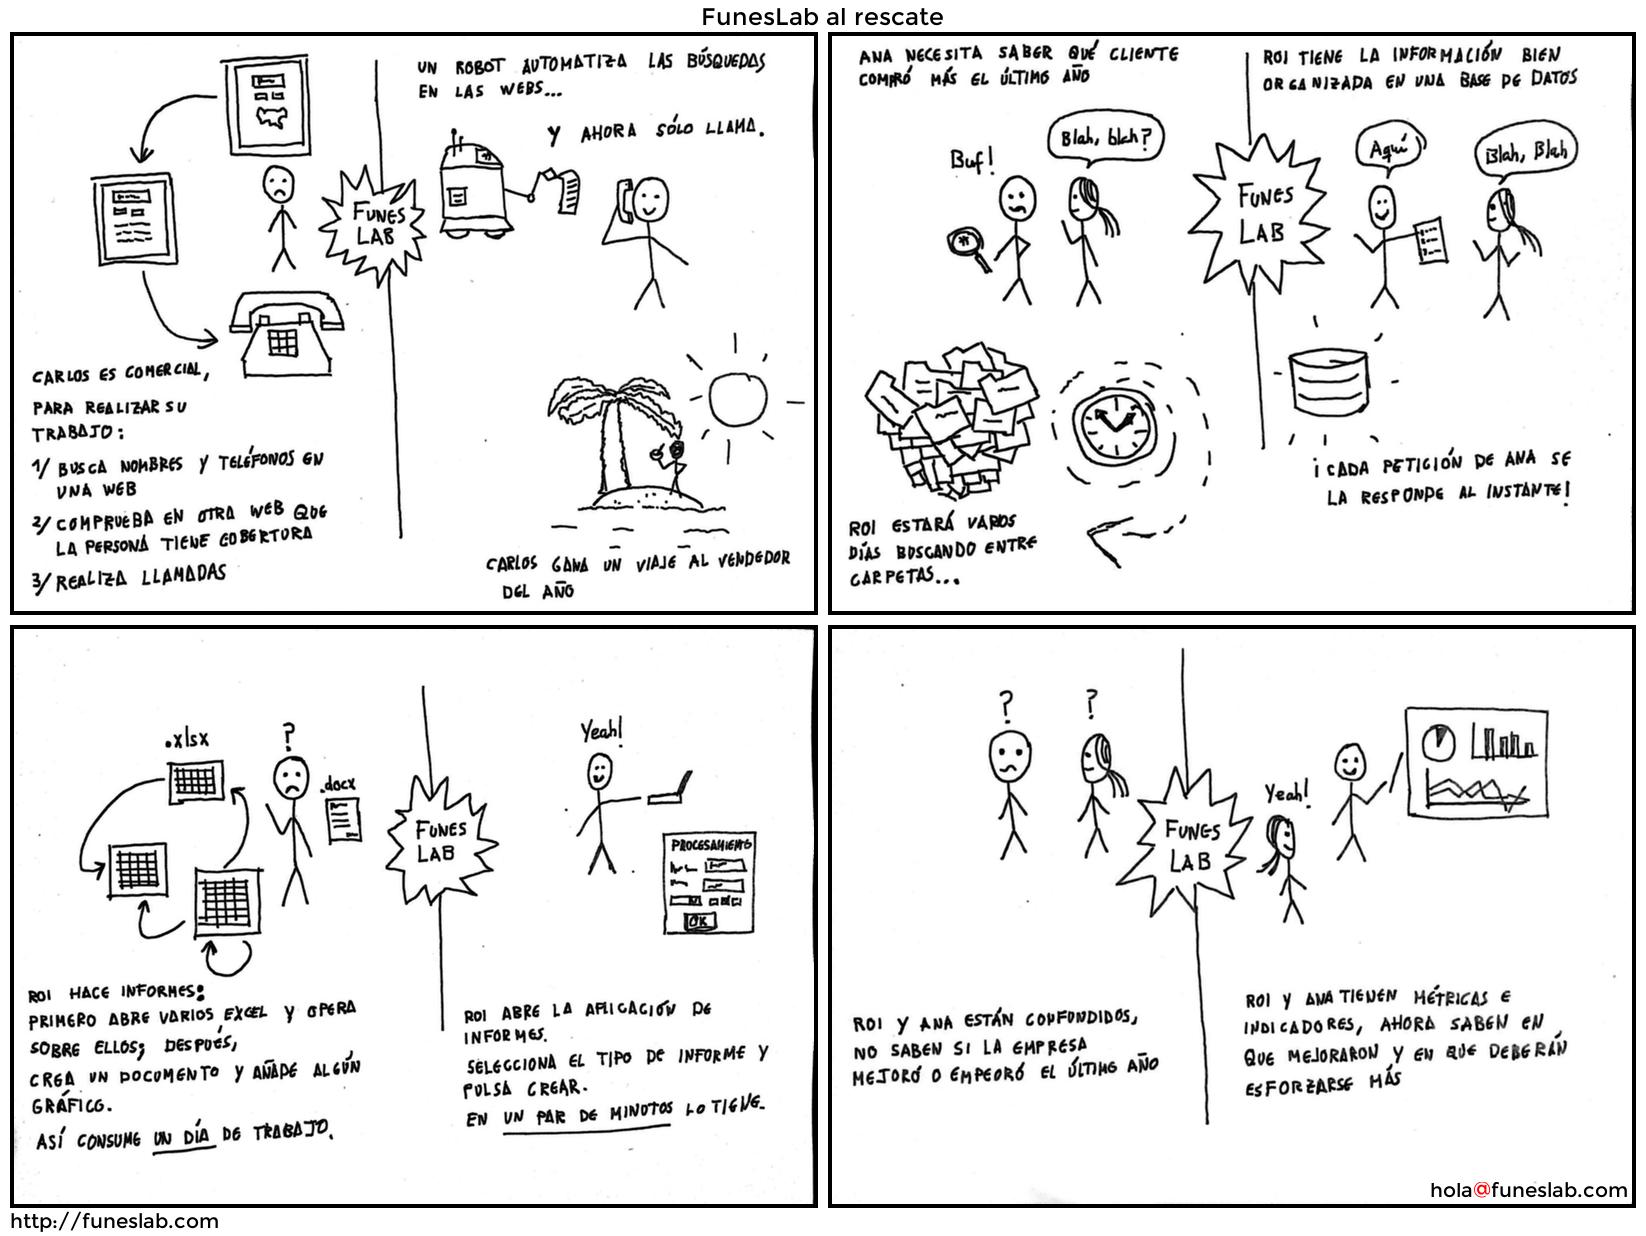 FunesLab al rescate
CARLOS ES COMERCIAL,
PARA REALIZAR SU
TRABAJO:
1/ BUSCA NOMBRES Y TELÉFONOS EN
UNA WEB
2/ COMPRUEBA EN OTRA WEB QUE
LA PERSONA TIENE COBERTURA
3/ REALIZA LLAMADAS
FUNES
LAB
UN ROBOT AUTOMATIZA LAS BÚSQUEDAS
EN LAS WEBS...
Y AHORA SÓLO LLAMA.
CARLOS GANA UN VIAJE AL VENDEDOR
DEL AÑO
ANA NECESITA SABER QUÉ CLIENTE
COMPRÓ MÁS EL ÚLTIMO AÑO
Buf!
Blah, blah?
ROI ESTARÁ VAROS
DÍAS BUSCANDO ENTRE
CARPETAS...
FUNES
LAB
ROI TIENE LA INFORMACIÓN BIEN
ORGANIZADA EN UNA BASE DE DATOS
Aquí
Blah, Blah
¡CADA PETICIÓN DE ANA SE
LA RESPONDE AL INSTANTE!
.xlsx
?
.docx
ROI HACE INFORMES:
PRIMERO ABRE VARIOS EXCEL Y OPERA
SOBRE ELLOS; DESPUÉS,
CREA UN DOCUMENTO Y AÑADE ALGÚN
GRÁFICO.
ASÍ CONSUME UN DÍA DE TRABAJO.
FUNES
LAB
Yeah!
PROCESAMIENTO
OK
ROI ABRE LA APLICACIÓN DE
INFORMES.
SELECCIONA EL TIPO DE INFORME Y
PULSA CREAR.
EN UN PAR DE MINUTOS LO TIENE.
? ?
ROI Y ANA ESTÁN CONFUNDIDOS,
NO SABEN SI LA EMPRESA
MEJORÓ O EMPEORÓ EL ÚLTIMO AÑO
FUNES
LAB
Yeah!
ROI Y ANA TIENEN MÉTRICAS E
INDICADORES, AHORA SABEN EN
QUE MEJORARON Y EN QUE DEBERÁN
ESFORZARSE MÁS
hola@funeslab.com
http://funeslab.com